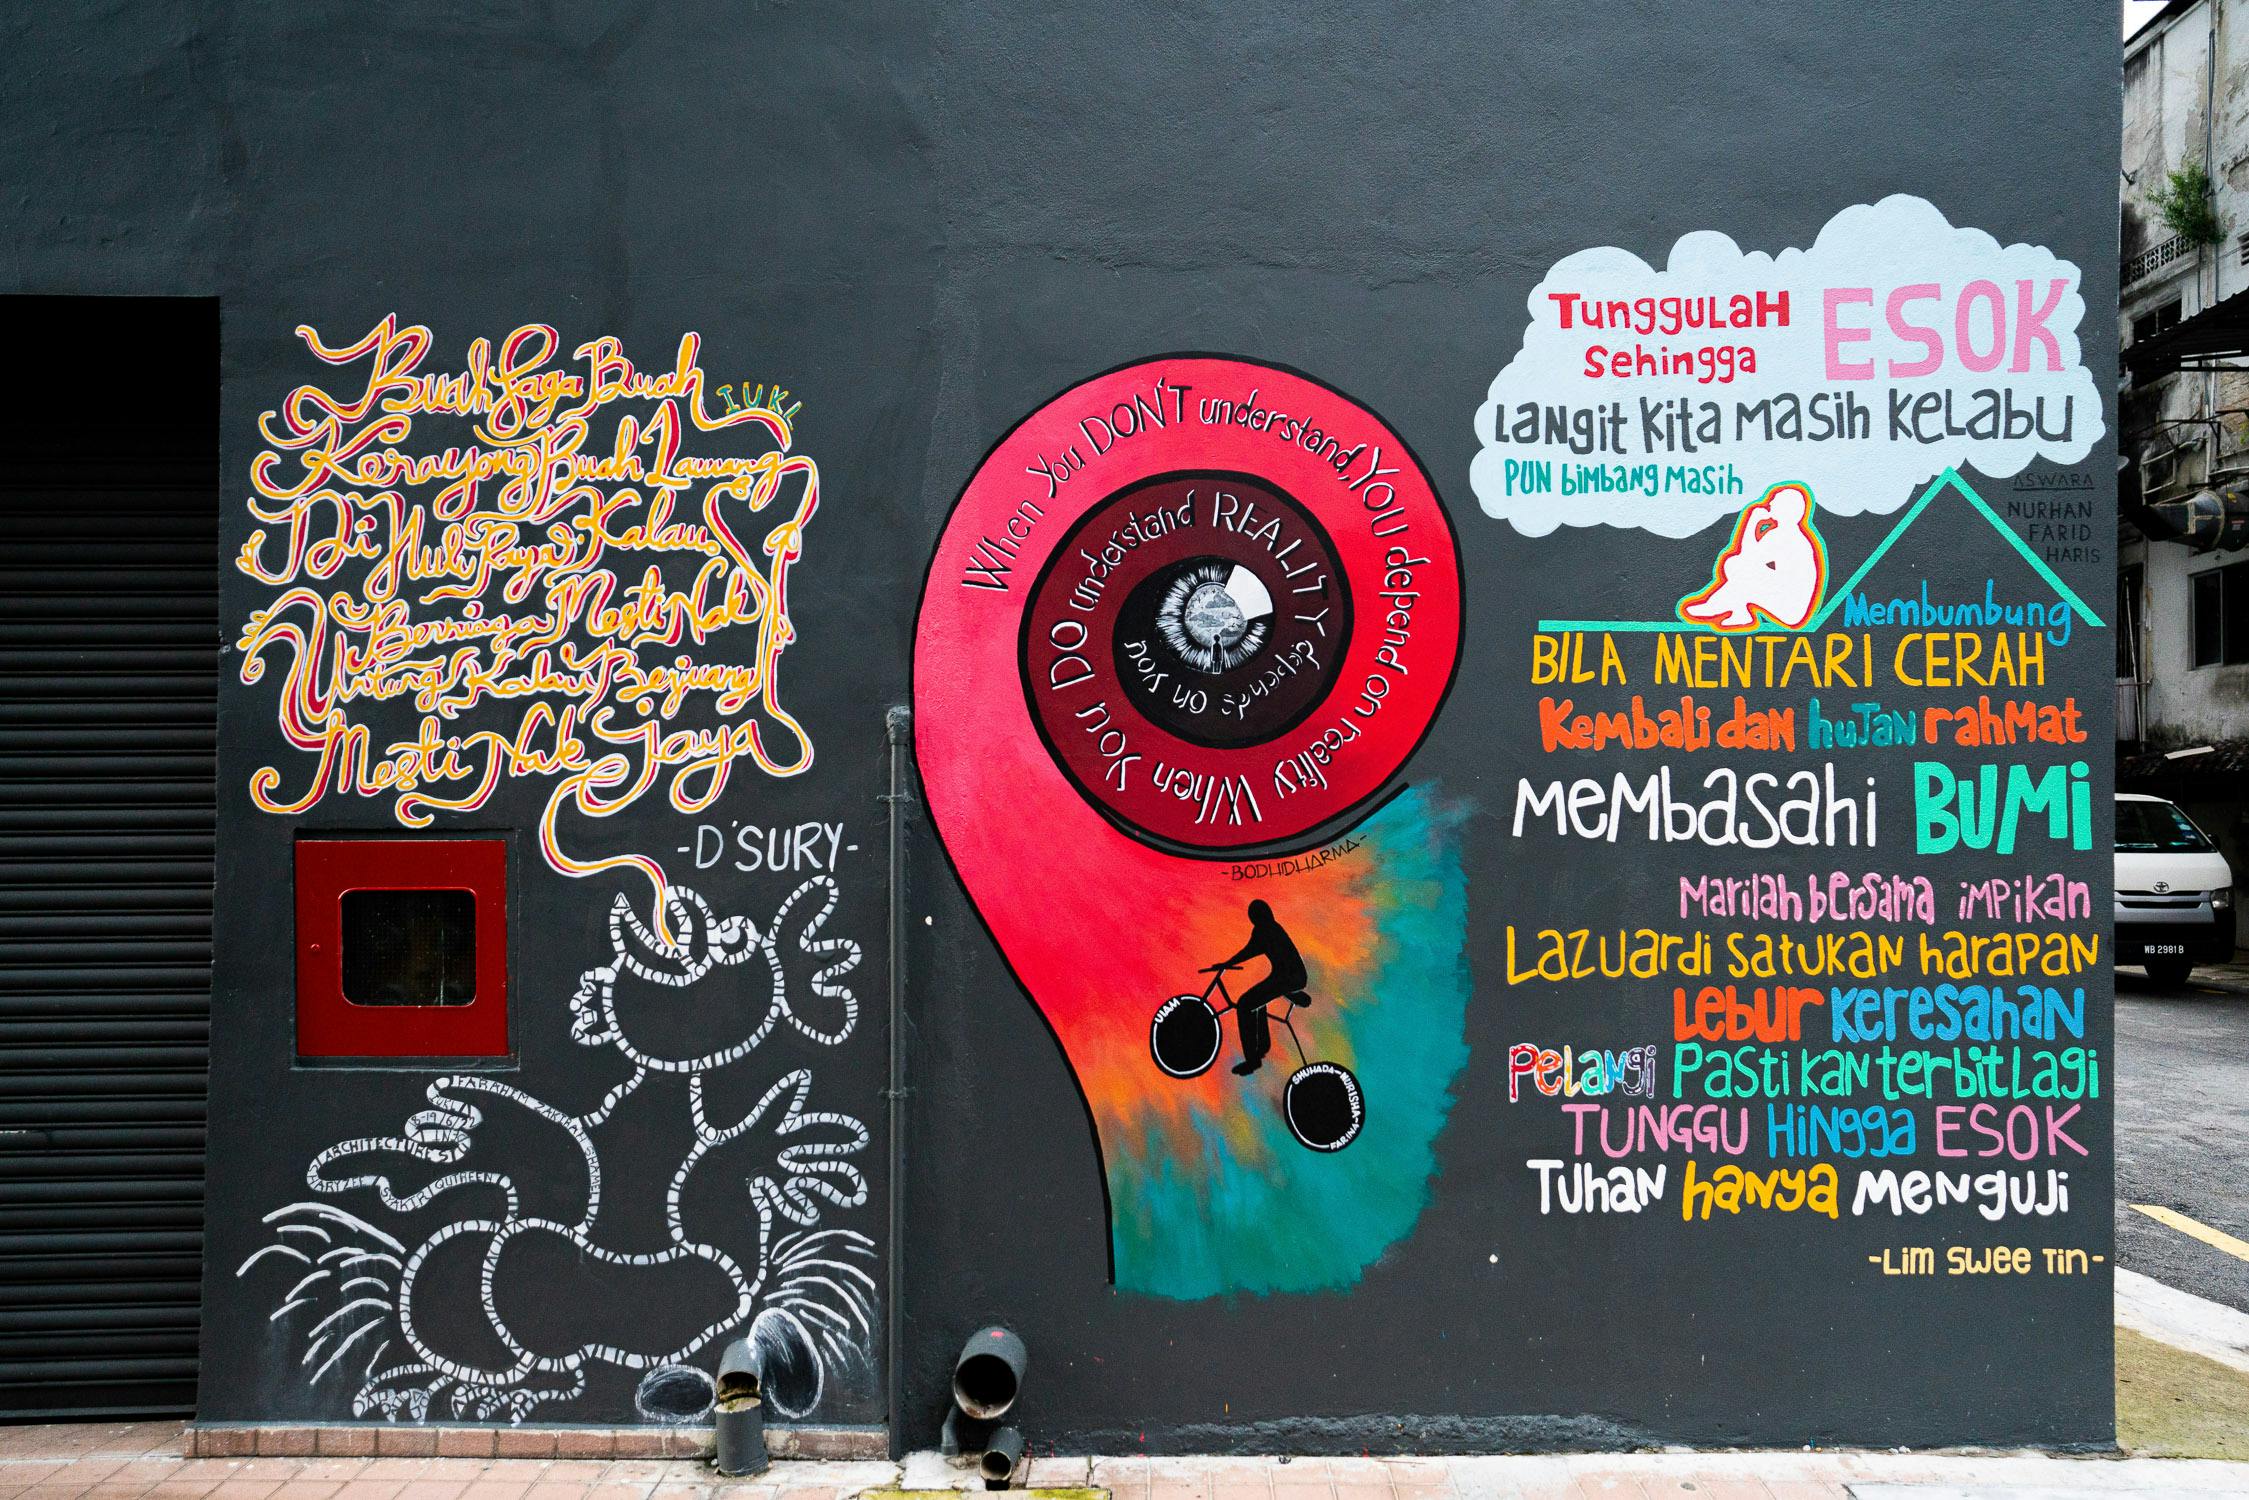 Buah Saga Buah
Kerayong Buah Lawang
Di Hulu Raya. Kalau
Berniaga Mesti Nak
Untung Kalau Berjuang
Mesti Nak Jaya
-D'SURY-
When You DON'T understand, YOU depend on reality When You DO understand REALITY depends on you
-BODHIDHARMA-
UIAM
SHUHADA-NURISHA-FARINA-
TUNGGULAH
SEHINGGA
ESOK
LANGIT KITA MASIH KELABU
PUN bimbang MASIH
ASWARA
NURHAN
FARID
HARIS
Membumbung
BILA MENTARI CERAH
Kembali dan huJan rahMat
MeMbaSahi BUMi
Marilah bersama iMPikan
Lazuardi satukan harapan
Lebur Keresahan
Pelangi Pasti kan terbit Lagi
TUNGGU Hingga ESOK
Tuhan hanya Menguji
-Lim Swee Tin-
WB 2981 B